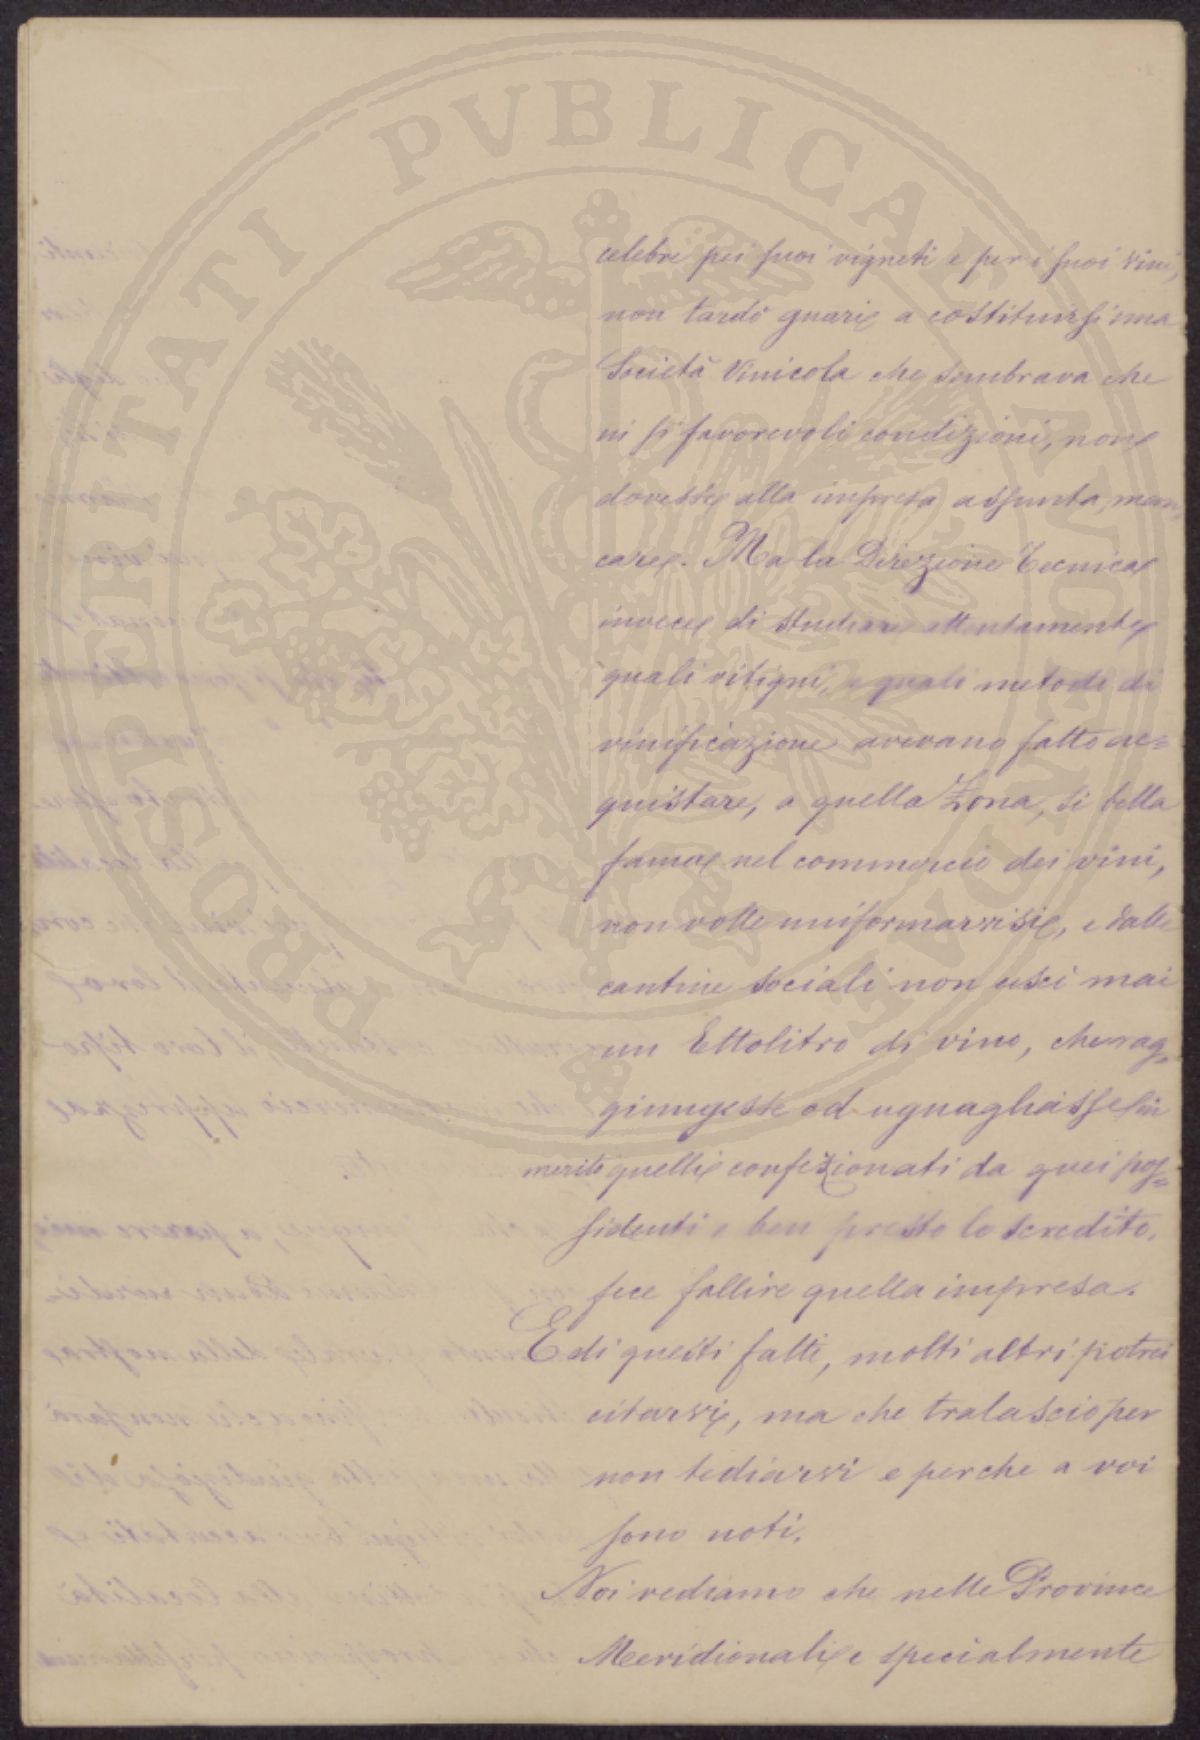 PROSPERITATI PVBLICAE AVGENDAE
celebre pei suoi vigneti e per i suoi vini,
non tardò guari a costituirsi una
Società Vinicola che sembrava che
in sì favorevoli condizioni, non
dovesse alla impresa assunta, man
care. Ma la Direzione Tecnica
invece di studiare attentamente
quali vitigni, e quali metodi di
vinificazione avevano fatto ac=
quistare, a quella Zona, si bella
fama nel commercio dei vini,
non volle uniformarvisi, e dalle
cantine sociali non uscì mai
un Ettolitro di vino, che rag=
giungesse od uguagliasse in
merito quelli confezionati da quei pos=
sidenti e ben presto lo scredito,
fece fallire quella impresa.
E di questi fatti, molti altri potrei
citarvi, ma che tralascio per
non tediarvi e perche a voi
sono noti.
Noi vediamo che nelle Province
Meridionali e specialmente